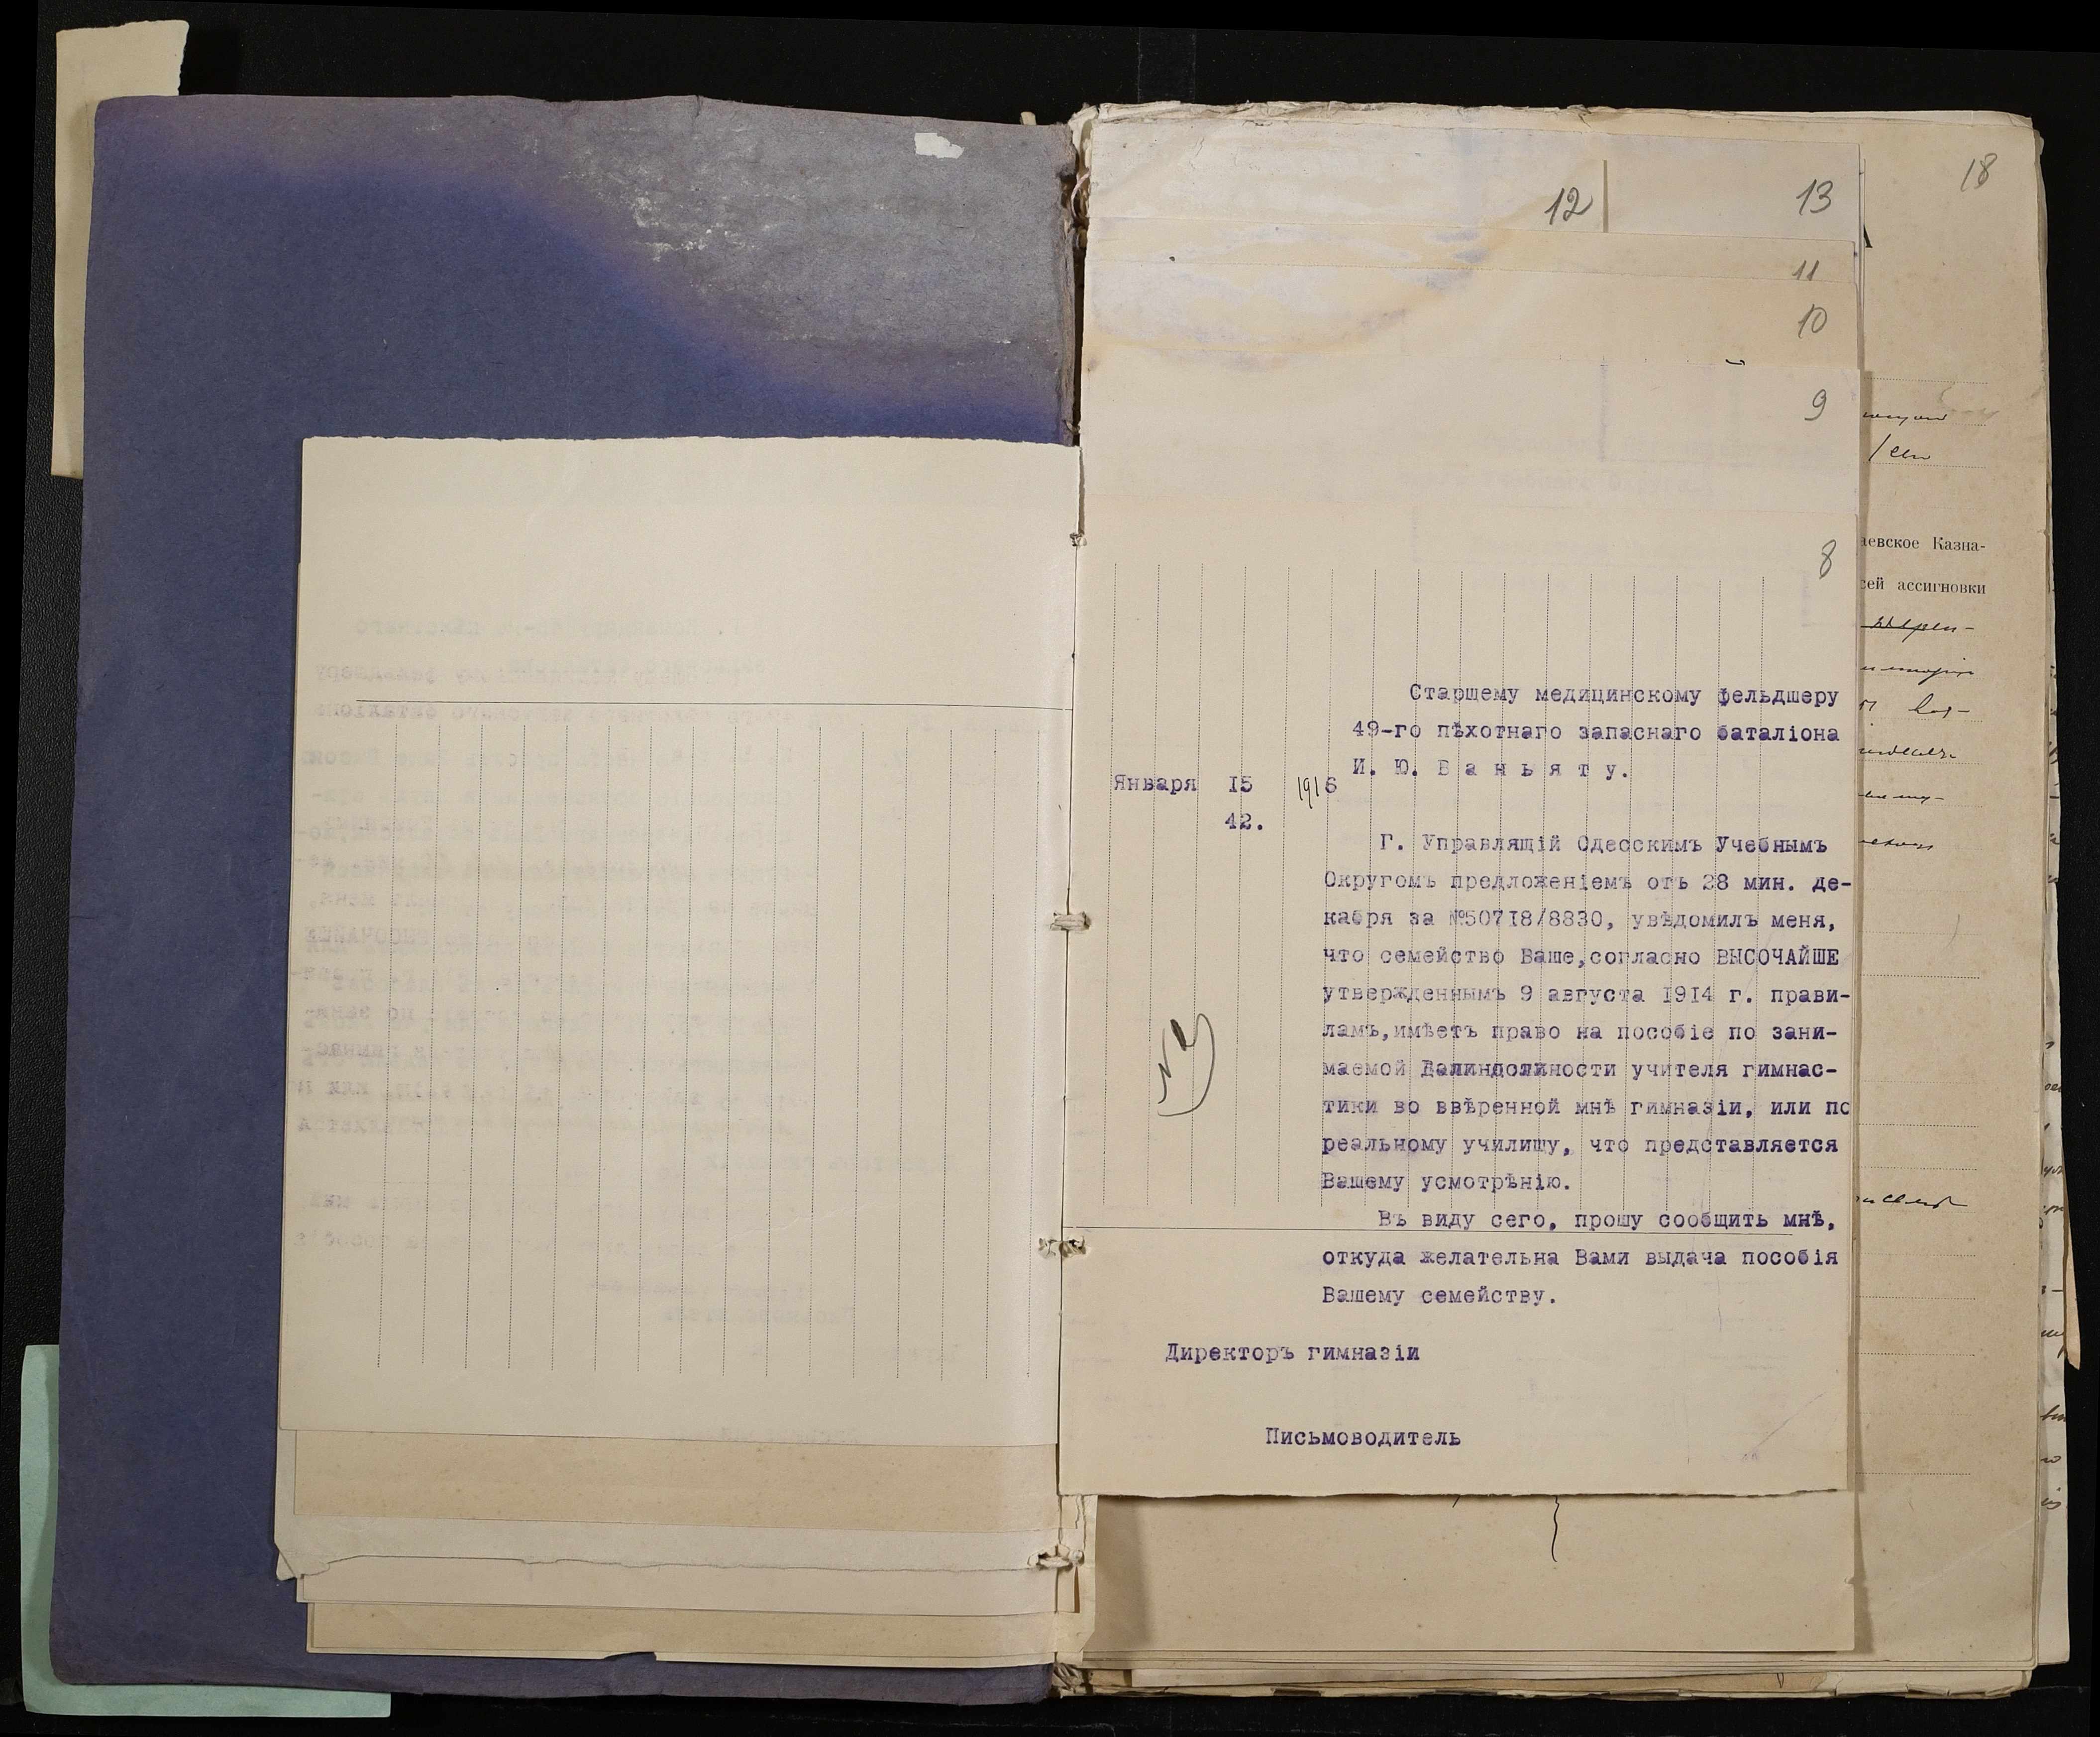 18
13
12
11
10
9
8
Старшему медицинскому фельдшеру
49-го пѣхотнаго запаснаго баталіона
И. Ю. Ваньяту.
Января 15 1916
42.
Г. Управлящій Одесскимъ Учебнымъ
Округомъ предложеніемъ отъ 28 мин. де-
кабря за №50718/8830, увѣдомилъ меня,
что семейство Ваше,согласно ВЫСОЧАЙШЕ
утвержденнымъ 9 августа 1914 г. прави-
ламъ,имѣетъ право на пособіе по зани-
маемой должности учителя гимнас-
тики во ввѣренной мнѣ гимназіи, или по
реальному училищу, что представляется
Вашему усмотрѣнію.
Въ виду сего, прошу сообщить мнѣ,
откуда желательна Вами выдача пособія
Вашему семейству.
Директоръ гимназіи
Письмоводитель
аевское Казна-
сей ассигновки